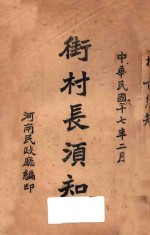 中華民國十七年二月
街村長須知
河南民政廳編印